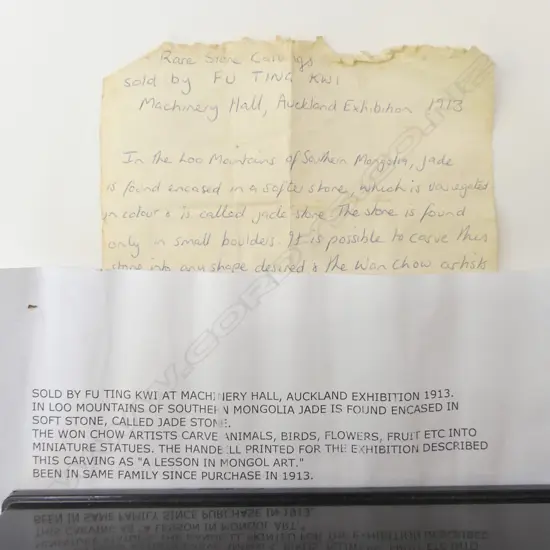 Rare Stone Carvings
sold by FU TING KWI
Machinery Hall, Auckland Exhibition 1913
In the Loo Mountains of Southern Mongolia, jade
is found encased in a softer stone, which is variegated
in colour & is called jade stone. The stone is found
only in small boulders. It is possible to carve this
stone into any shape desired & the Won Chow artists
SOLD BY FU TING KWI AT MACHINERY HALL, AUCKLAND EXHIBITION 1913.
IN LOO MOUNTAINS OF SOUTHERN MONGOLIA JADE IS FOUND ENCASED IN
SOFT STONE, CALLED JADE STONE.
THE WON CHOW ARTISTS CARVE ANIMALS, BIRDS, FLOWERS, FRUIT ETC INTO
MINIATURE STATUES. THE HANDBILL PRINTED FOR THE EXHIBITION DESCRIBED
THIS CARVING AS "A LESSON IN MONGOL ART."
BEEN IN SAME FAMILY SINCE PURCHASE IN 1913.